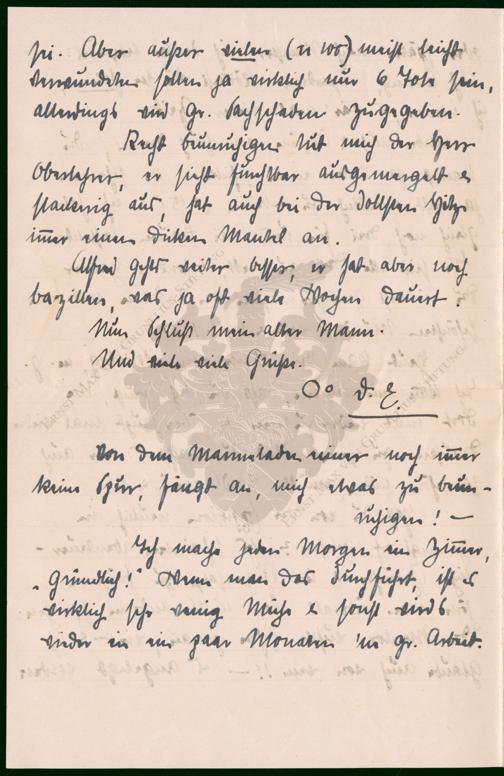 sei. Aber außer vielen (ca 100) meist leicht
Verwundeten sollen ja wirklich nur 6 Tote sein,
allerdings wird gr. Sachschaden zugegeben.
Recht beunruhigen tut mich der Herr
Oberlehrer, er sieht furchtbar ausgemergelt &
aus, hat auch bei der dollsten Hitze
immer einen dicken Mantel an.
Alfred gehts weiter besser, er hat aber noch
bazillen, was ja oft viele Wochen dauert.
Nun Schluß mein alter Mann.
Und viele viele Grüße.
D. E.
Von dem Marmeladeneimer noch immer
keine Spur, fängt an, mich etwas zu beun-
ruhigen! —
Ich mache jeden Morgen ein Zimmer,
„Gründlich!" Wenn man das durchführt, ist es
wirklich sehr wenig Mühe & sonst wirds
wieder in ein paar Monaten 'ne gr. Arbeit.